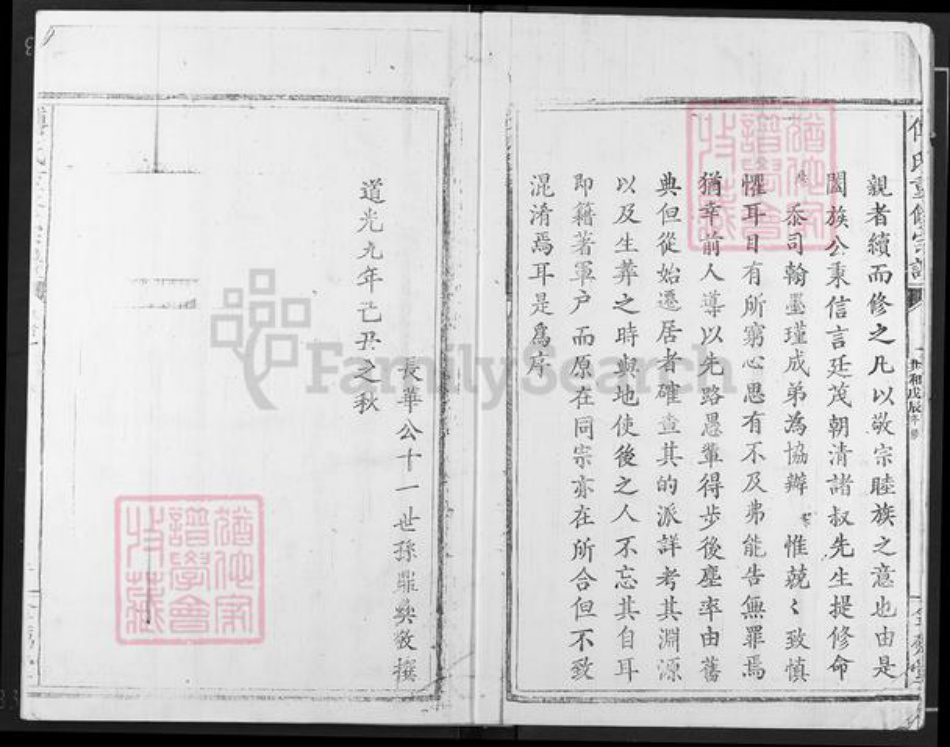 親者續而修之凡以敬宗睦族之意也由是
闔族公秉信言廷茂朝清諸叔先生提修命
忝司翰墨瑾成弟為協辦 惟兢〻致慎
懼耳目有所窮心思有不及弗能告無罪焉
猶幸前人導以先路愚輩得步後塵率由舊
典但從始遷居者確查其的派詳考其淵源
以及生葬之時與地使後之人不忘其自耳
即籍著軍户而原在同宗亦在所合但不致
混淆焉耳是為序
長華公十一世孫鼎奐敬撰
道光九年己丑之秋
氏重修宗譜
共和戊辰年修
猶他家譜學會收藏
猶他家譜學會收藏
FamilySearch